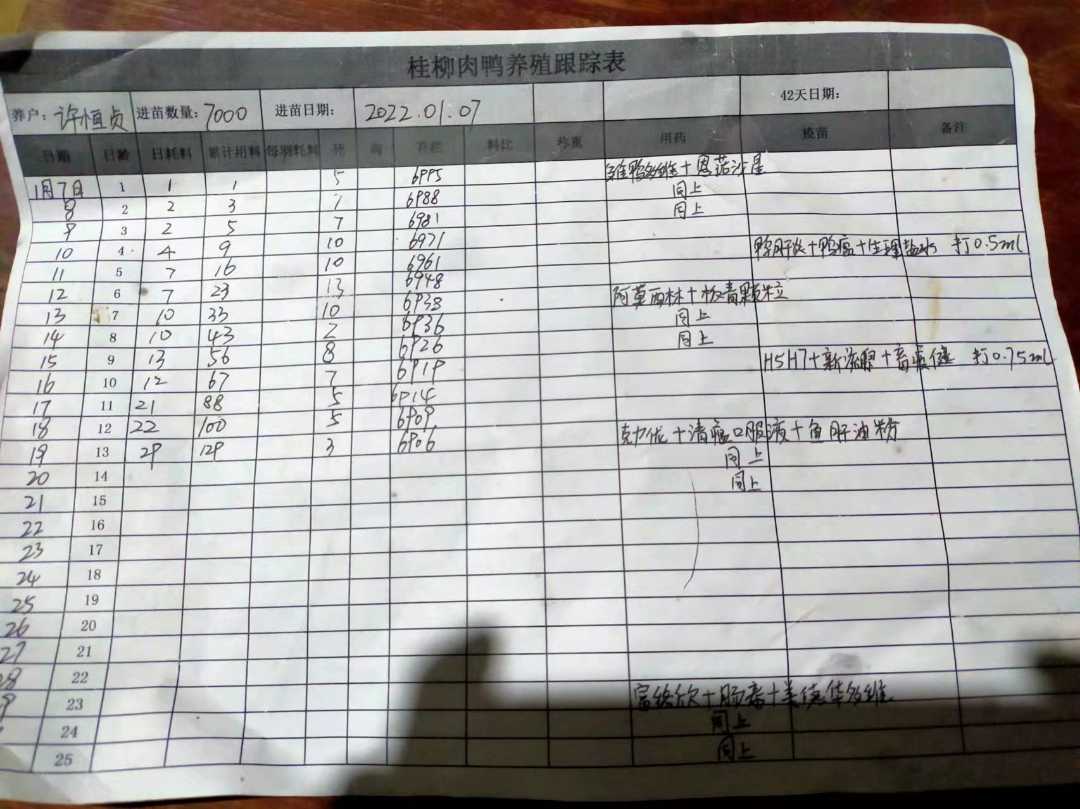 桂柳肉鸭养殖跟踪表
养户: 许恒贞 进苗数量: 7000 进苗日期: 2022.01.07 42天日期:
日期 日龄 日耗料 累计用料 每羽耗料 死 淘 存栏 料比 称重 用药 疫苗 备注
1月7日 1 1 1 5 6995 多维+恩诺沙星
8 2 2 3 7 6988 同上
9 3 2 5 7 6981 同上
10 4 4 9 10 6971 鸭肝炎+鸭瘟+生理盐水 打0.5ml
11 5 7 16 10 6961
12 6 7 23 13 6948 阿莫西林+板青颗粒
13 7 10 33 10 6938 同上
14 8 10 43 2 6936 同上
15 9 13 56 8 6926 H5H7+新流 打0.75ml
16 10 12 67 7 6919
17 11 21 88 5 6914
18 12 22 100 5 6909 +清瘟口服液+鱼肝油粉
19 13 29 129 3 6906 同上
20 14 同上
21 15
22 16
23 17
24 18
25 19
26 20
27 21
28 22
9 23 +肠毒+美德华多维
24 同上
25 同上